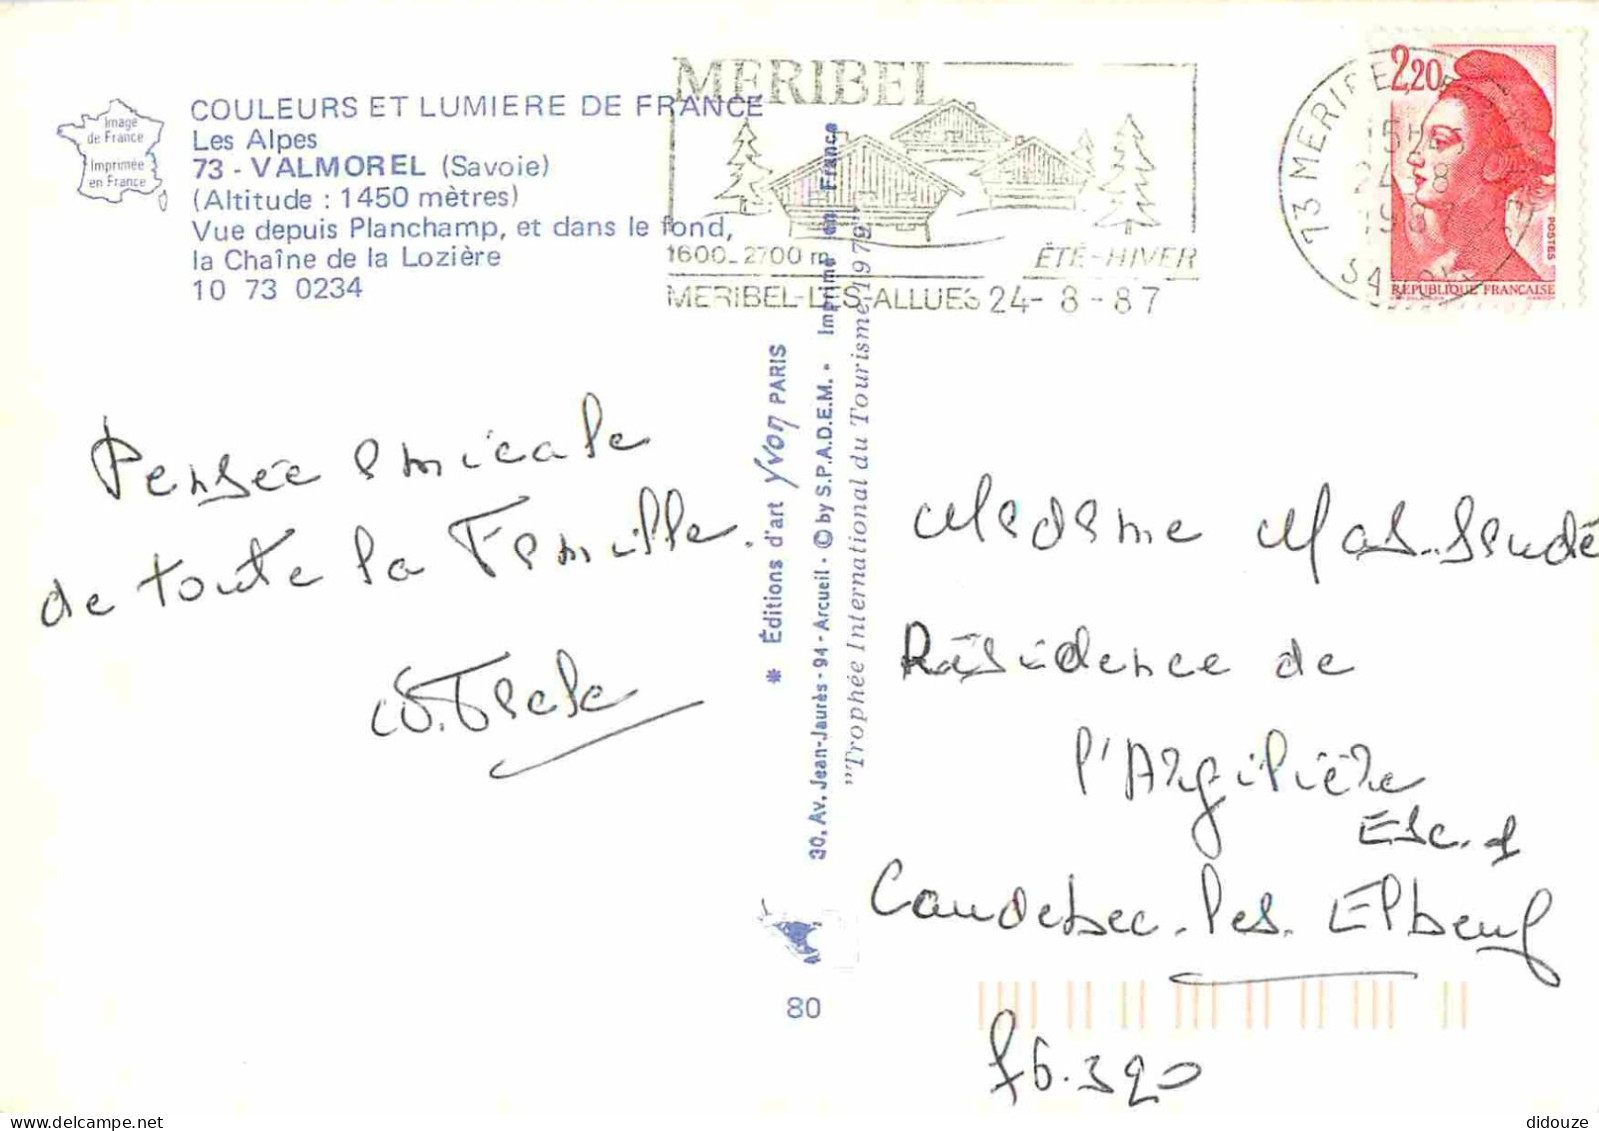 Image
de France
Imprimée
en France
COULEURS ET LUMIERE DE FRANCE
Les Alpes
73 - VALMOREL (Savoie)
(Altitude : 1450 mètres)
Vue depuis Planchamp, et dans le fond,
la Chaîne de la Lozière
10 73 0234
MERIBEL
1600-2700 m
ÉTÉ-HIVER
MERIBEL-LES-ALLUES 24-8-87
73 MERIBEL
15H45
24-8
1987
SAVOIE
2,20
POSTES
REPUBLIQUE FRANÇAISE
Pensée amicale
de toute la Famille.
* Éditions d'art Yvon PARIS
30, Av. Jean-Jaurès - 94 - Arcueil - © by S.P.A.D.E.M. - Imprimé en France
"Trophée International du Tourisme 1979"
80
Madame
Résidence de
l'Argilière
Esc. 1
Caudebec-les-Elbeuf
76.320
didouze